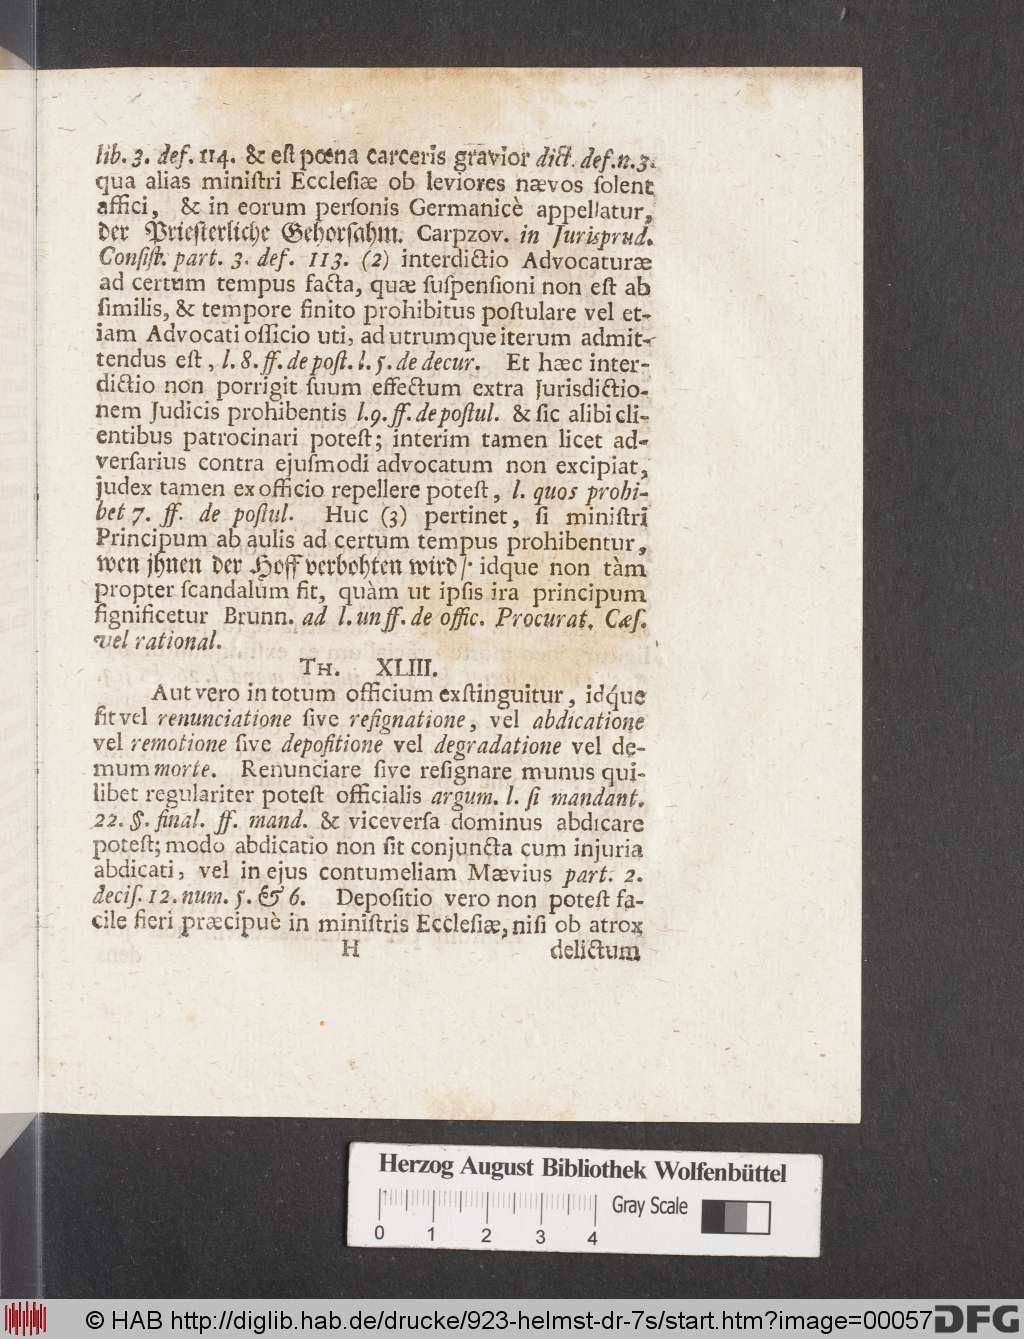 lib. 3. def. 114. & eſt pœna carceris gravior dict. def. n. 3.
qua alias miniſtri Eccleſiæ ob leviores nævos ſolent
affici, & in eorum perſonis Germanicè appellatur,
der Prieſterliche Gehorſahm. Carpzov. in Jurisprud.
Conſiſt. part. 3. def. 113. (2) interdictio Advocaturæ
ad certum tempus facta, quæ ſuſpenſioni non eſt ab
ſimilis, & tempore finito prohibitus poſtulare vel et-
iam Advocati officio uti, ad utrumque iterum admit-
tendus eſt, l. 8. ff. de poſt. l. 5. de decur. Et hæc inter-
dictio non porrigit ſuum effectum extra Jurisdictio-
nem Judicis prohibentis l. 9. ff. de poſtul. & ſic alibi cli-
entibus patrocinari poteſt; interim tamen licet ad-
verſarius contra ejuſmodi advocatum non excipiat,
judex tamen ex officio repellere poteſt, l. quos prohi-
bet 7. ff. de poſtul. Huc (3) pertinet, ſi miniſtri
Principum ab aulis ad certum tempus prohibentur,
wen jhnen der Hoff verbohten wird / idque non tàm
propter ſcandalum fit, quàm ut ipſis ira principum
ſignificetur Brunn. ad l. un ff. de offic. Procurat. Cæſ.
vel rational.
TH. XLIII.
Aut vero in totum officium exſtinguitur, idq́ue
fit vel renunciatione ſive reſignatione, vel abdicatione
vel remotione ſive depoſitione vel degradatione vel de-
mum morte. Renunciare ſive reſignare munus qui-
libet regulariter poteſt officialis argum. l. ſi mandant.
22. §. final. ff. mand. & viceverſa dominus abdicare
poteſt; modo abdicatio non ſit conjuncta cum injuria
abdicati, vel in ejus contumeliam Mævius part. 2.
deciſ. 12. num. 5. & 6. Depoſitio vero non poteſt fa-
cile fieri præcipuè in miniſtris Eccleſiæ, niſi ob atrox
H delictum
Herzog August Bibliothek Wolfenbüttel
Gray Scale
0 1 2 3 4
© HAB http://diglib.hab.de/drucke/923-helmst-dr-7s/start.htm?image=00057
DFG